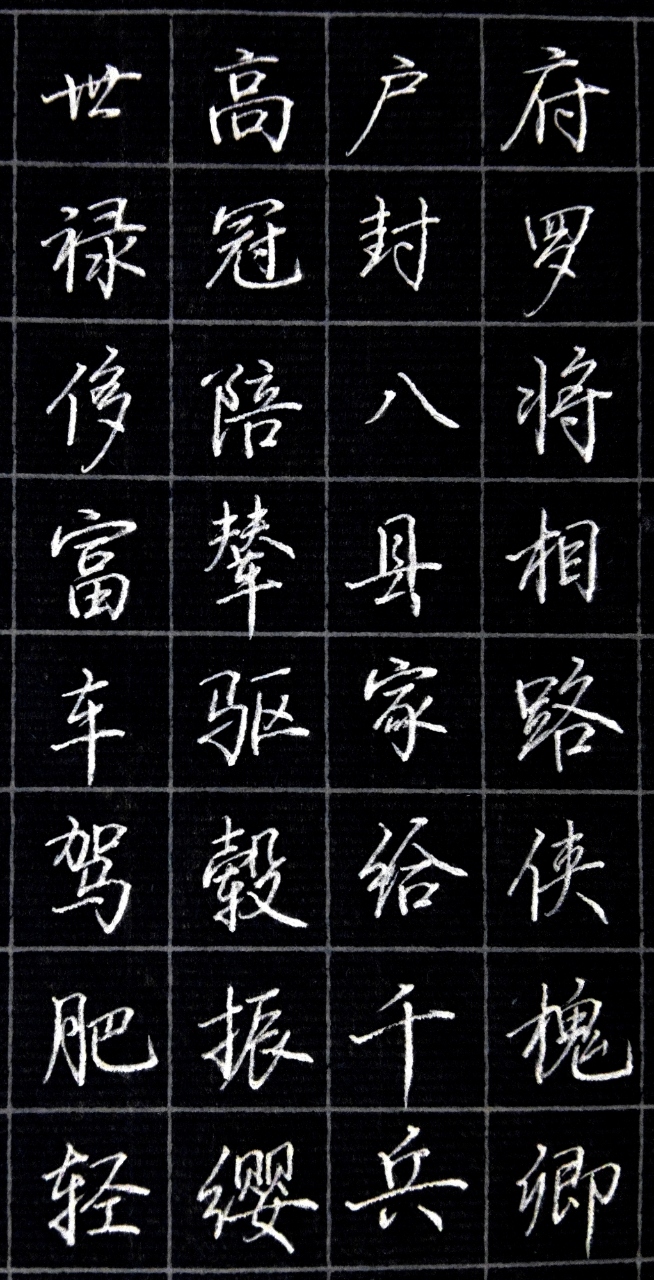 府罗将相路侠槐卿
户封八县家给千兵
高冠陪辇驱毂振缨
世禄侈富车驾肥轻